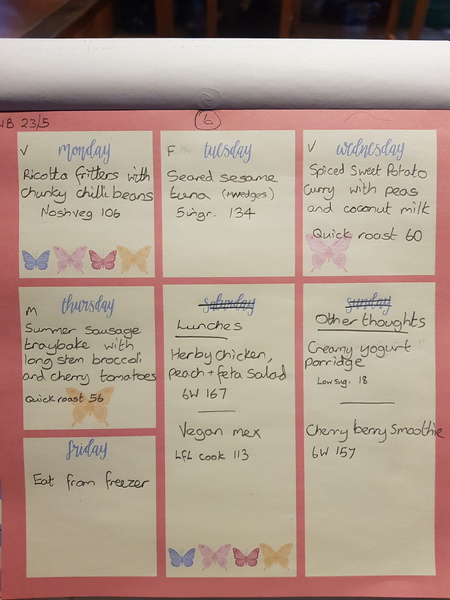 WB 23/5
6
monday
V
Ricotta fritters with
chunky chilli beans
Noshveg 106
tuesday
F
Seared sesame
tuna (+wedges)
5ingr. 134
wednesday
V
Spiced Sweet Potato
curry with peas
and coconut milk
Quick roast 60
thursday
M
Summer Sausage
traybake with
long stem broccoli
and cherry tomatoes
Quick roast 56
friday
Eat from freezer
saturday
Lunches
Herby chicken,
peach + feta salad
6W 167
Vegan mex
LFL cook 113
sunday
Other thoughts
Creamy yogurt
porridge
Low sug. 18
Cherry berry smoothie
6W 157